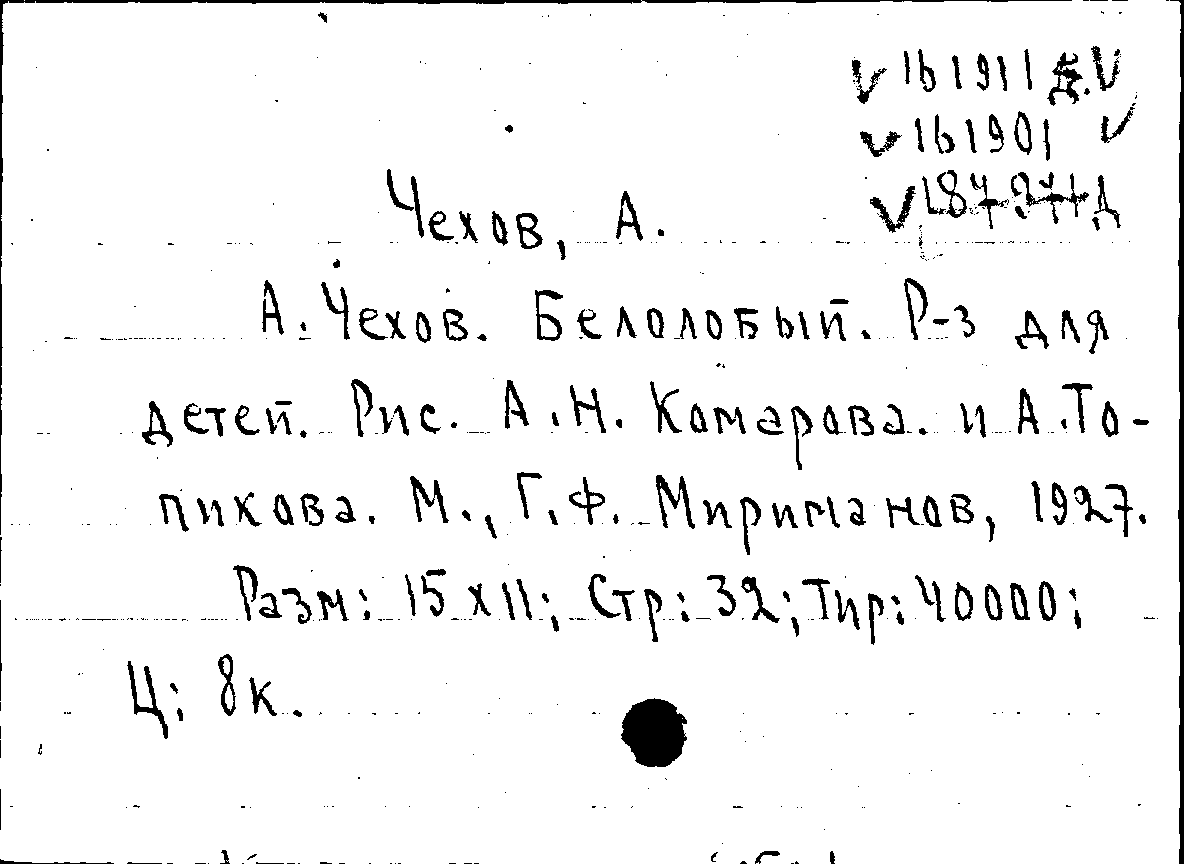 V 161911 Д. V
V 161901 V
V 187971 Д
Чехов, А.
А. Чехов. Белолобый. Р-з для
детей. Рис. А.Н. Комарова. и А. То-
пикова. М., Г.Ф. Мириманов, 1927.
Разм: 15 х 11; Стр: 32; Тир: 40000;
Ц: 8к.